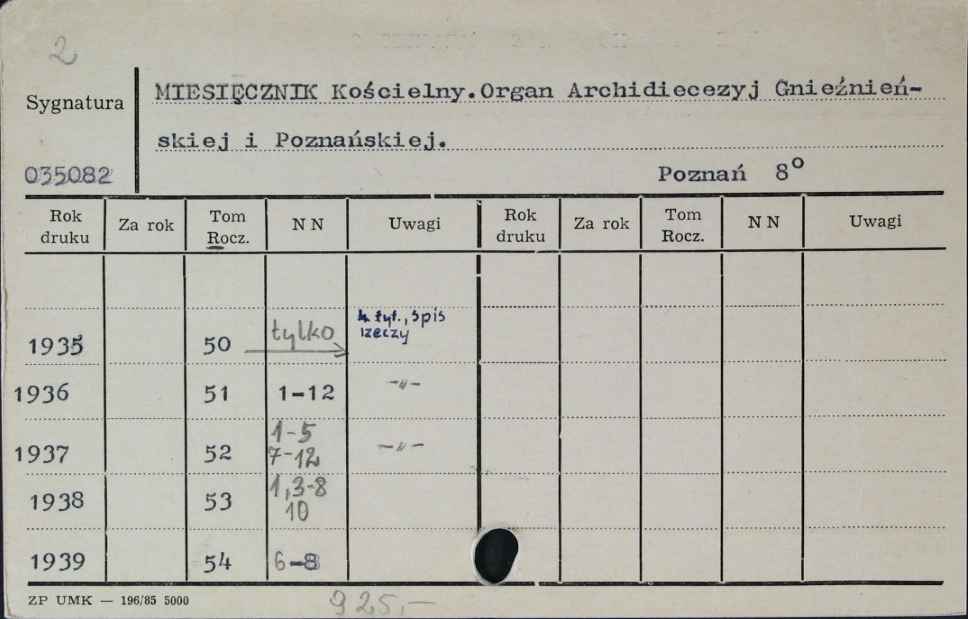 2
Sygnatura
MIESIĘCZNIK Kościelny.Organ Archidiecezyj Gnieźnień-
skiej i Poznańskiej.
035082
Poznań 8°
Rok druku Za rok Tom Rocz. N N Uwagi Rok druku Za rok Tom Rocz. N N Uwagi
1935 50 tylko k. tyt., spis rzeczy
1936 51 1-12 -"-
1937 52 1-5 7-12 -"-
1938 53 1,3-8 10
1939 54 6-8
ZP UMK — 196/85 5000
925,—